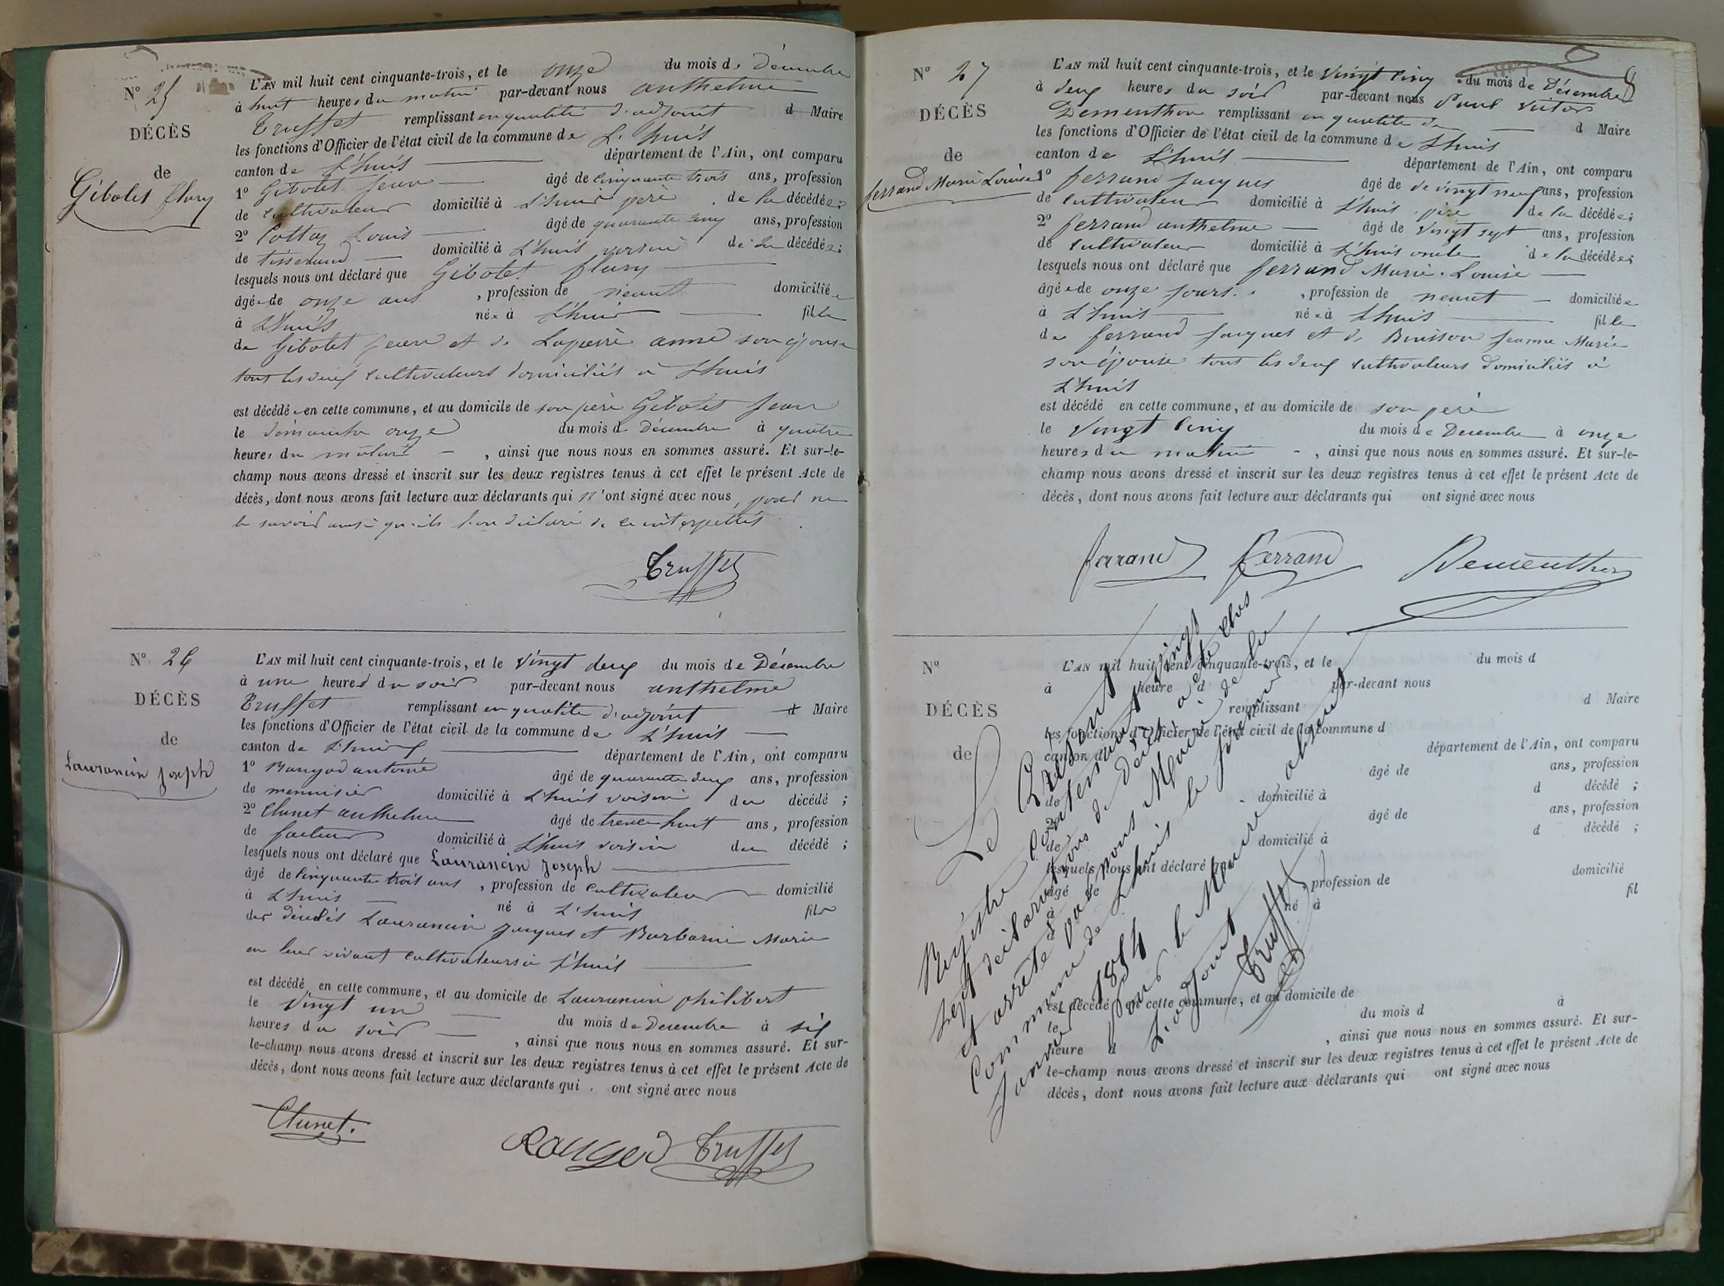 N° 25
DÉCÈS
de
Gibolet fleury
L'AN mil huit cent cinquante-trois, et le onze du mois de Décembre
à huit heures du matin par-devant nous anthelme
Truffet remplissant en qualité d'adjoint d Maire
les fonctions d'Officier de l'état civil de la commune de L'huis
canton de L'huis département de l'Ain, ont comparu
1° Gibolet Jean âgé de cinquante trois ans, profession
de cultivateur domicilié à L'huis père de la décédée;
2° Cottaz Louis âgé de quarante cinq ans, profession
de tisserand domicilié à L'huis voisin de la décédée;
lesquels nous ont déclaré que Gibolet fleury
âgée de onze ans, profession de néant domiciliée
à L'huis née à L'huis fille
de Gibolet jean et de anne son épouse
tout les deux cultivateurs domiciliés à L'huis
est décédée en cette commune, et au domicile de son père Gibolet Jean
le dimanche onze du mois de Décembre à quatre
heures du matin, ainsi que nous nous en sommes assuré. Et sur-le-
champ nous avons dressé et inscrit sur les deux registres tenus à cet effet le présent Acte de
décès, dont nous avons fait lecture aux déclarants qui n'ont signé avec nous pour ne
le savoir ainsi qu'ils l'on déclaré de ce interpellés
Truffet
N° 26
DÉCÈS
de
Laurancin Joseph
L'AN mil huit cent cinquante-trois, et le vingt deux du mois de Décembre
à une heures du soir par-devant nous anthelme
Truffet remplissant en qualité d'adjoint d Maire
les fonctions d'Officier de l'état civil de la commune de L'huis
canton de L'huis département de l'Ain, ont comparu
1° antoine âgé de quarante deux ans, profession
de menuisier domicilié à L'huis voisin du décédé;
2° Chunet anthelme âgé de trente huit ans, profession
de facteur domicilié à L'huis voisin du décédé;
lesquels nous ont déclaré que Laurancin Joseph
âgé de cinquante trois ans, profession de cultivateur domicilié
à L'huis né à L'huis fils
des décédés Laurancin Jacques et Barbarin Marie
en leur vivant cultivateurs à L'huis
est décédé en cette commune, et au domicile de Laurancin philibert
le vingt un du mois de Decembre à six
heures du soir, ainsi que nous nous en sommes assuré. Et sur-
le-champ nous avons dressé et inscrit sur les deux registres tenus à cet effet le présent Acte de
décès, dont nous avons fait lecture aux déclarants qui ont signé avec nous
Chunet. Truffet
N° 27
DÉCÈS
de
ferrand Marie Louise
L'AN mil huit cent cinquante-trois, et le vingt cinq du mois de Décembre
à deux heures du soir par-devant nous Paul Victor
Dementhon remplissant en qualité de d Maire
les fonctions d'Officier de l'état civil de la commune de L'huis
canton de L'huis département de l'Ain, ont comparu
1° ferrand Jacques âgé de vingt neuf ans, profession
de cultivateur domicilié à L'huis père de la décédée;
2° ferrand anthelme âgé de vingt sept ans, profession
de cultivateur domicilié à L'huis oncle de la décédée;
lesquels nous ont déclaré que ferrand Marie Louise
âgée de onze jours, profession de néant domiciliée
à L'huis née à L'huis fille
de ferrand Jacques et de Buisson Jeanne Marie
son épouse tout les deux cultivateurs domiciliés à
L'huis
est décédé en cette commune, et au domicile de son père
le vingt cinq du mois de Decembre à onze
heures du matin, ainsi que nous nous en sommes assuré. Et sur-le-
champ nous avons dressé et inscrit sur les deux registres tenus à cet effet le présent Acte de
décès, dont nous avons fait lecture aux déclarants qui ont signé avec nous
ferrand ferrand Dementhon
N°
DÉCÈS
de
L'AN mil huit cent cinquante-trois, et le du mois d
à heure d par-devant nous
remplissant d Maire
les fonctions d'Officier de l'état civil de la commune d
canton d département de l'Ain, ont comparu
1° âgé de ans, profession
de domicilié à d décédé;
2° âgé de ans, profession
de domicilié à d décédé;
lesquels nous ont déclaré que
âgé de, profession de domicilié
à né à fil
est décédé en cette commune, et au domicile de
le du mois d à
heure d, ainsi que nous nous en sommes assuré. Et sur-
le-champ nous avons dressé et inscrit sur les deux registres tenus à cet effet le présent Acte de
décès, dont nous avons fait lecture aux déclarants qui ont signé avec nous
Le Présent
Registre Contenant vingt
sept déclarations de Décès a été Clos
et arrêté par nous Maire de la
Commune de Lhuis le premier
Janvier 1854
Pour le Maire absent
L'adjoint
Truffet